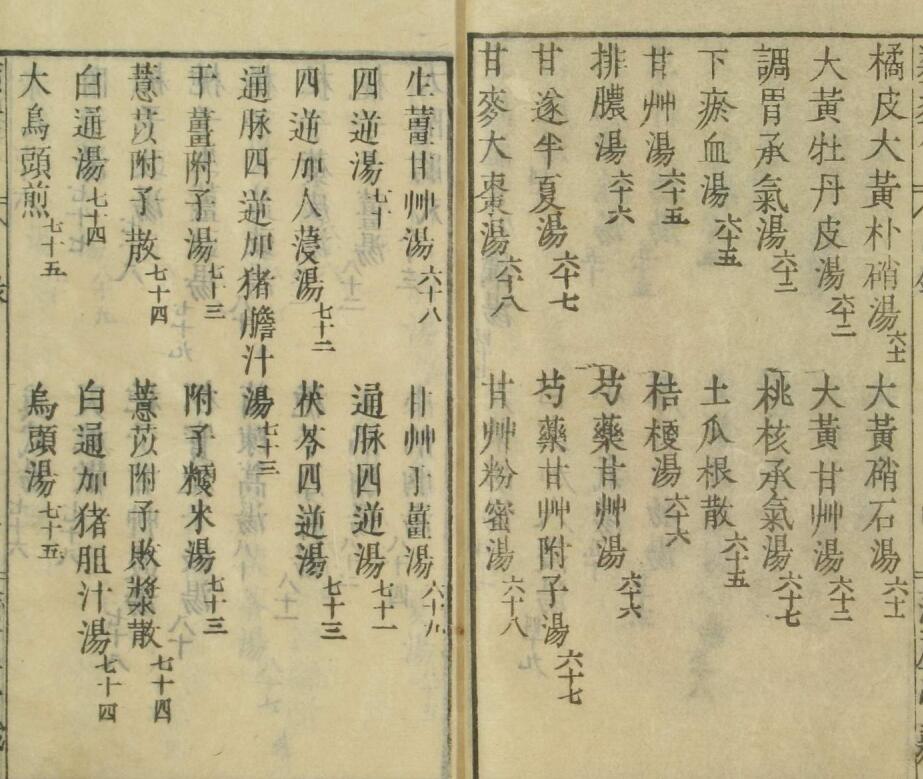 橘皮大黃朴硝湯六十一 大黃硝石湯六十一
大黃牡丹皮湯六十二 大黃甘艸湯六十二
調胃承氣湯六十二 桃核承氣湯六十七
下瘀血湯六十五 土瓜根散六十五
甘艸湯六十五 桔梗湯六十六
排膿湯六十六 芍藥甘艸湯六十六
甘遂半夏湯六十七 芍藥甘艸附子湯六十七
甘麥大棗湯六十八 甘艸粉蜜湯六十八
生薑甘艸湯六十八 甘艸干薑湯六十九
四逆湯七十 通脉四逆湯七十一
四逆加人蓡湯七十二 茯苓四逆湯七十三
通脉四逆加猪膽汁湯七十三
干薑附子湯七十三 附子糉米湯七十三
薏苡附子散七十四 薏苡附子敗漿散七十四
白通湯七十四 白通加猪胆汁湯七十四
大烏頭煎七十五 烏頭湯七十五